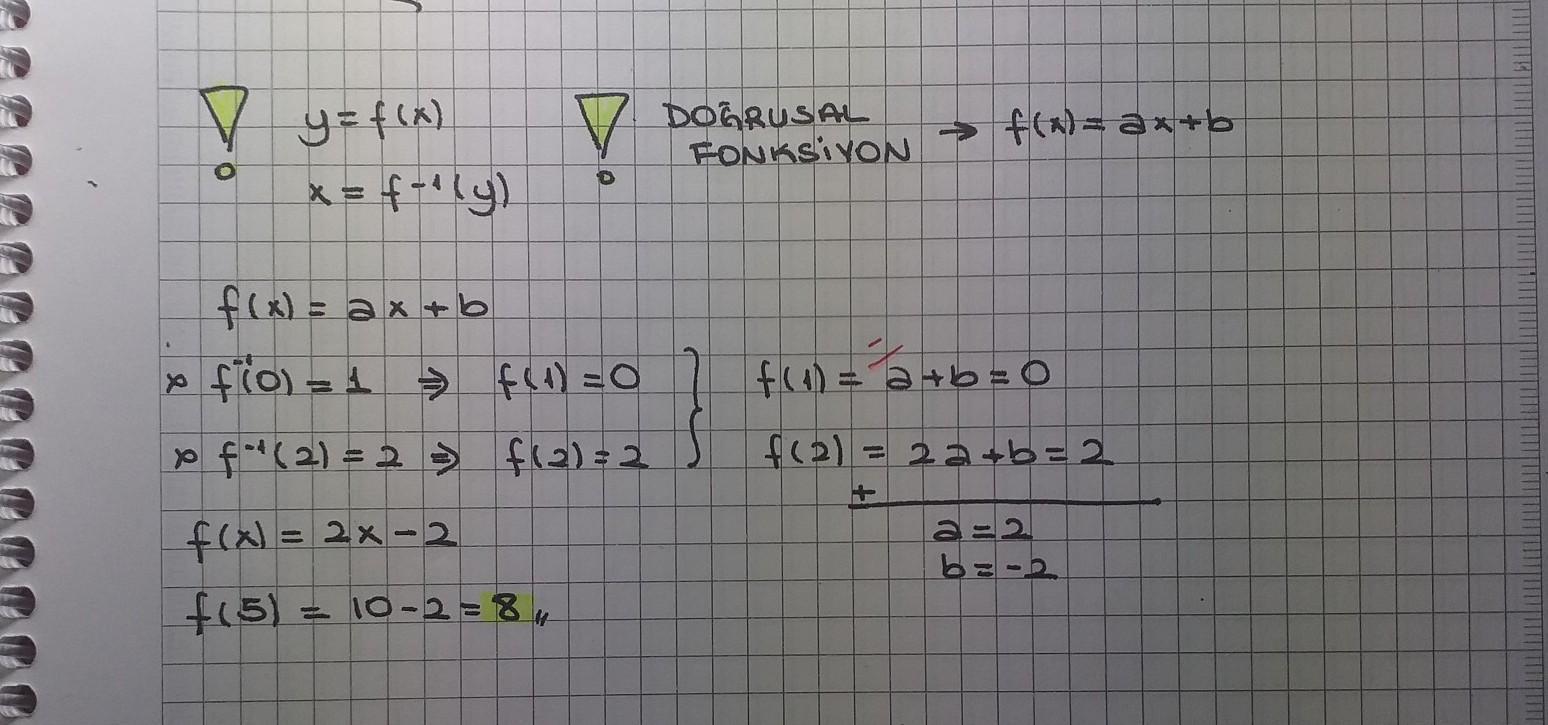 y = f(x)
x = f⁻¹(y)
DOĞRUSAL
FONKSİYON → f(x) = ax+b
f(x) = ax + b
f⁻¹(0) = 1 ⇒ f(1) = 0
f⁻¹(2) = 2 ⇒ f(2) = 2
f(1) = -/ a+b = 0
f(2) = 2a+b = 2
+
a = 2
b = -2
f(x) = 2x - 2
f(5) = 10 - 2 = 8 //